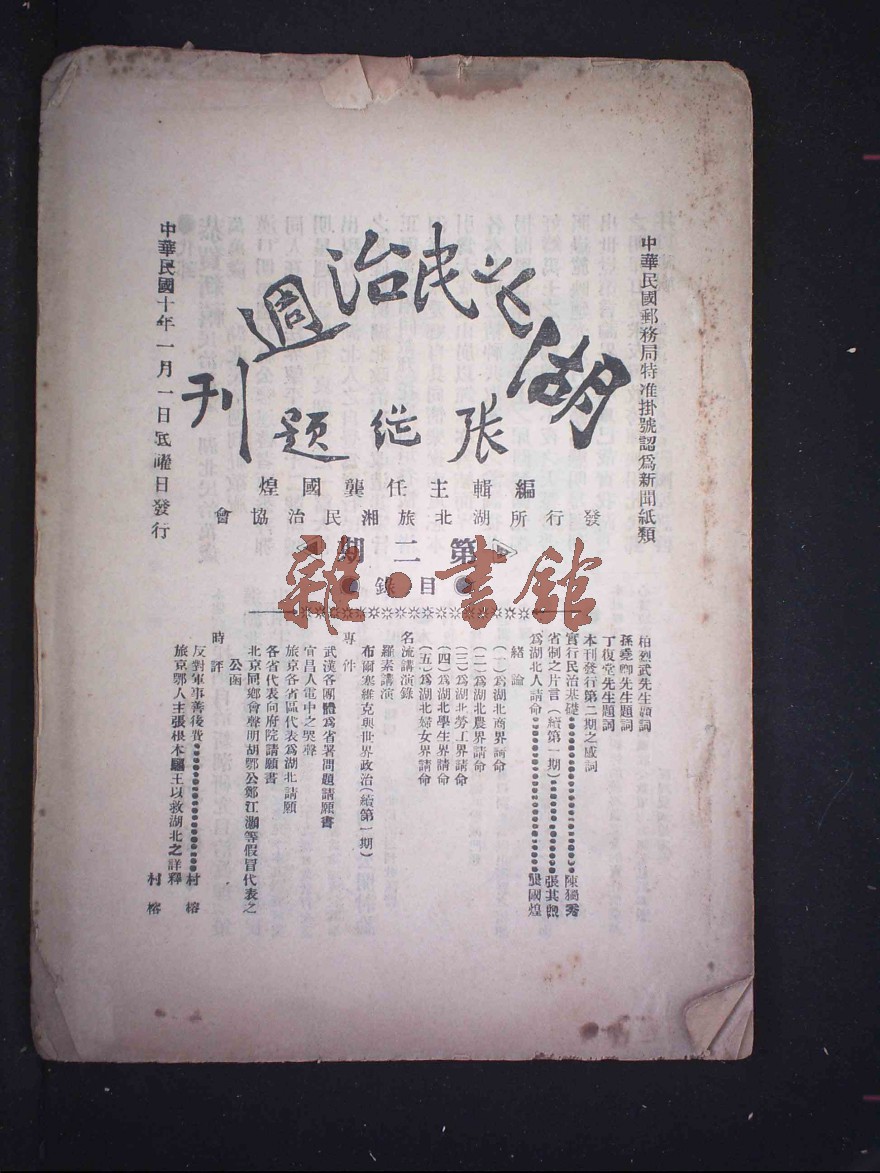 中華民國郵務局特准掛號認爲新聞紙類
湖北民治週刊
張継題
中華民國十年一月一日土曜日發行
編輯主任龔國煌
發行所湖北旅湘民治協會
第二期
目錄
雜·書館
柏烈武先生題詞
孫堯卿先生題詞
丁復堂先生題詞
本刊發行第二期之感詞
實行民治基礎 陳獨秀
省制之片言(續第一期) 張其煦
爲湖北人請命 龔國煌
緒論
(一)爲湖北商界請命
(二)爲湖北農界請命
(三)爲湖北勞工界請命
(四)爲湖北學生界請命
(五)爲湖北婦女界請命
名流講演錄
羅素講演
布爾塞維克與世界政治(續第一期)
專件
武漢各團體爲省署問題請願書
宜昌人電中之哭聲
旅京各省區代表爲湖北請願
各省代表向府院請願書
北京同鄉會聲明胡鄂公鄭江灝等假冒代表之公函
時評
反對軍事善後費 村榕
旅京鄂人主張根本驅王以救湖北之詳釋 村榕